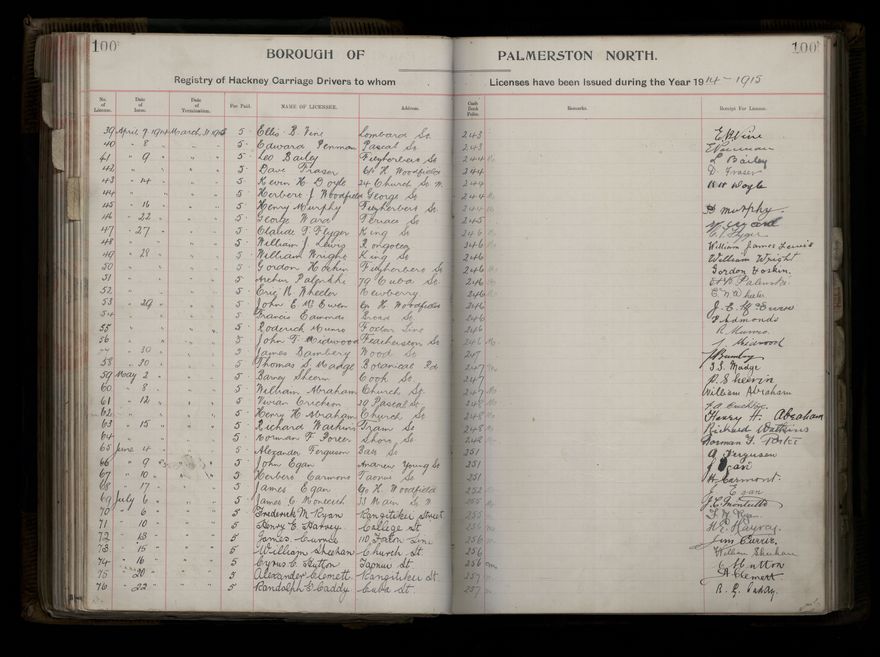 100
BOROUGH OF PALMERSTON NORTH.
100
Registry of Hackney Carriage Drivers to whom Licenses have been Issued during the Year 1914-1915
No. of License. Date of Issue. Date of Termination. Fee Paid. NAME OF LICENSEE. Address. Cash Book Folio. Remarks. Receipt For License.
39 April 7 1914 March 31 1915 5 Ellis B Vine Lombard St. 243 E B Vine
40 " 8 " " 5 Edward Penman Pascal St. 243
41 " 9 " " 5 Leo Bailey Fitzherbert St 244 L Bailey
42 " " " 5 Dave Fraser C/o H Woodfield 244 D. Fraser
43 " 14 " " 5 Kevin H. Doyle 24 Church St. W. 244
44 " " " 5 Herbert J. Woodfield George St. 244
45 " 16 " " 5 Henry Murphy Fitzherbert St. H Murphy
46 " 22 " " 5 George Ward Terrace St. 245
47 " 27 " " 5 Claude T. Flyger King St 246
48 " " " 5 William J Lewis Rongotea 246 William James Lewis
49 " 28 " " 5 William Wright King St 246 William Wright
50 " " " 5 Gordon Hoskin Fitzherbert St 246 Gordon Hoskin.
51 " " " 5 Arthur 79 Cuba St. 246
52 " " " 5 Eric N Wheeler Newberry 246 E N Wheeler
53 " 29 " " 5 John E McEwen C/o H Woodfield 246 J. E. McEwen
54 " " " 5 Francis Edmonds Broad St. 246 F Edmonds
55 " " " 5 Roderick Munro Foxton Line 246 R. Munro.
56 " " " 5 John F. Midwood Featherston St. 246
57 " 30 " " 5 James Bambery Wood St. 247
58 " 30 " " 5 Thomas S. Madge Botanical Rd 247 T.S. Madge
59 May 2 " " 5 Barney Cook St. 247
60 " 8 " " 5 William Abraham Church St. 247 William Abraham
61 " 12 " " 5 Vivian 29 Pascal St.
62 " " " 5 Henry H Abraham Church St 248 Henry H. Abraham
63 " 15 " " 5 Richard Watkins Tram St 248 Richard Watkins
64 " " " 5 Norman F Foster Short St. 248 Norman F. Foster
65 June 4 " " 5 Alexander Ferguson 251 A Ferguson
66 " 9 " " 5 John Egan Andrew Young St 251
67 " 10 " " 5 Herbert Taonui St 251
68 " 17 " " 5 James Egan C/o H. Woodfield 252 Egan
69 July 6 " " 5 James C Monteith 33 Main St W 255
70 " 6 " " 5 Frederick M Ryan Rangitikei Street 255
71 " 10 " " 5 Henry E Harvey College St 256
72 " 13 " " 5 James Currie 110 Foxton Line 256 Jim Currie.
73 " 15 " " 5 William Sheehan Church St 256 William Sheehan
74 " 16 " " 5 Cyrus C Hutton Taonui St 256 C Hutton
75 " 20 " " 5 Alexander Clemett Rangitikei St 257 A Clemett
76 " 22 " " 5 Randolph E Caddy Cuba St. 257